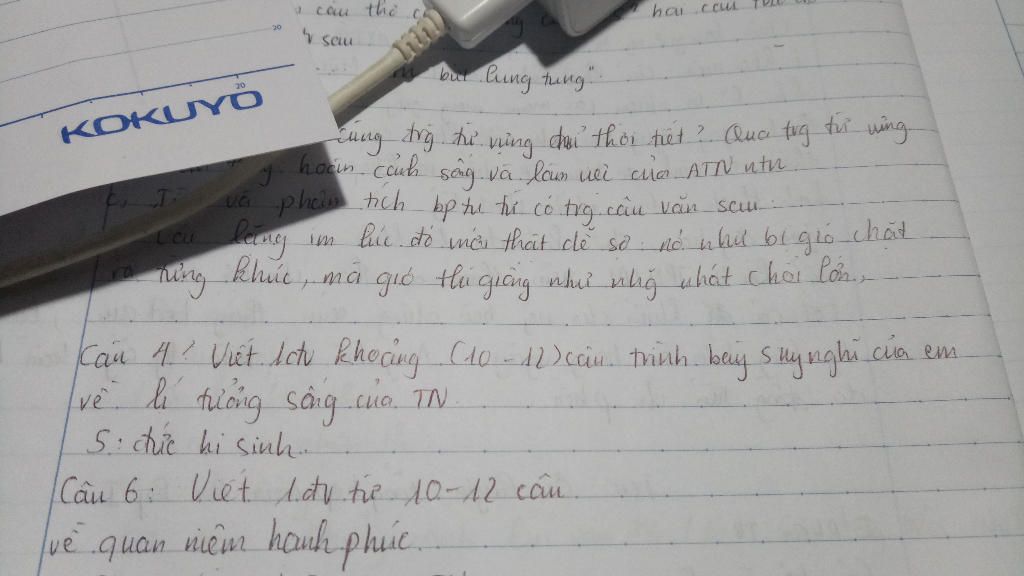 câu thế hai câu
sau
bút lung tung".
20
20
KOKUYO
cùng trg từ vựng chỉ thời tiết? Qua trg từ vựng
hoàn cảnh sống và làm việc của ATN ntn
và phân tích bptu từ có trg câu văn sau:
lặng im lúc đó mới thật dễ sợ: nó như bị gió chặt
ra từng khúc, mà gió thì giống như nhg nhát chổi lớn,
Câu 4: Viết 1đv khoảng (10-12) câu trình bày suy nghĩ của em
về lí tưởng sống của TN.
5: đức hi sinh.
Câu 6: Viết 1đv từ 10-12 câu
về quan niệm hạnh phúc.